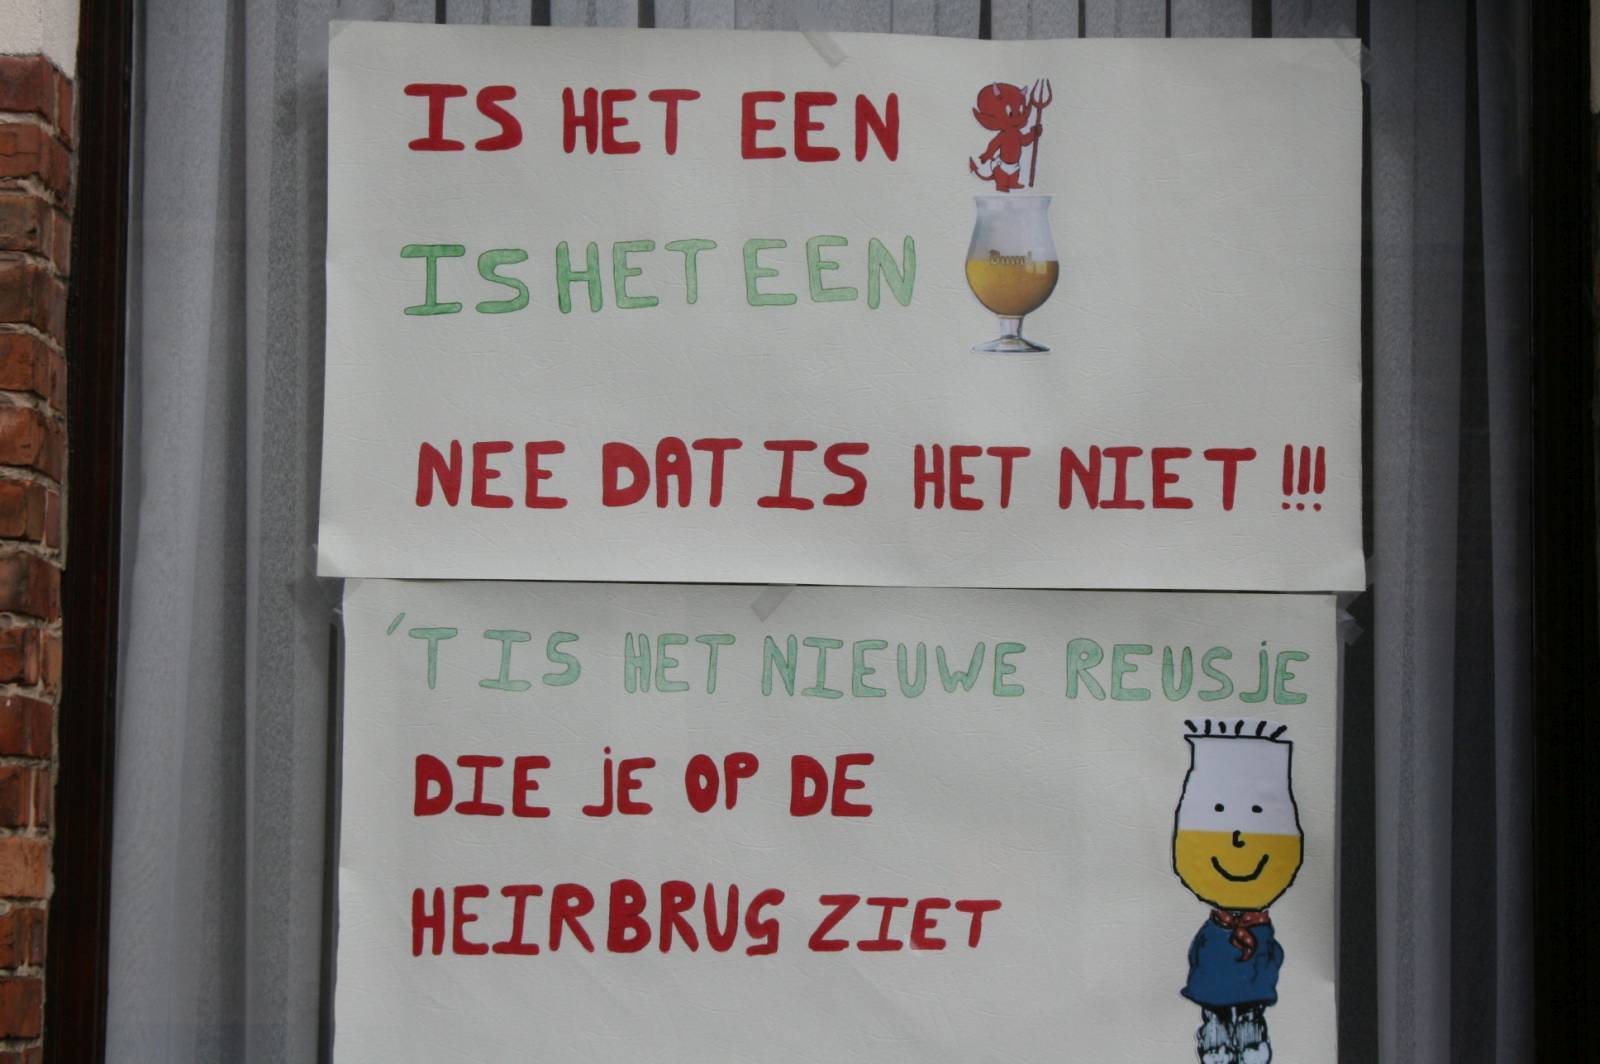 IS HET EEN
IS HET EEN
Duvel
NEE DAT IS HET NIET !!!
'T IS HET NIEUWE REUSjE
DIE jE OP DE
HEIRBRUG ZIET